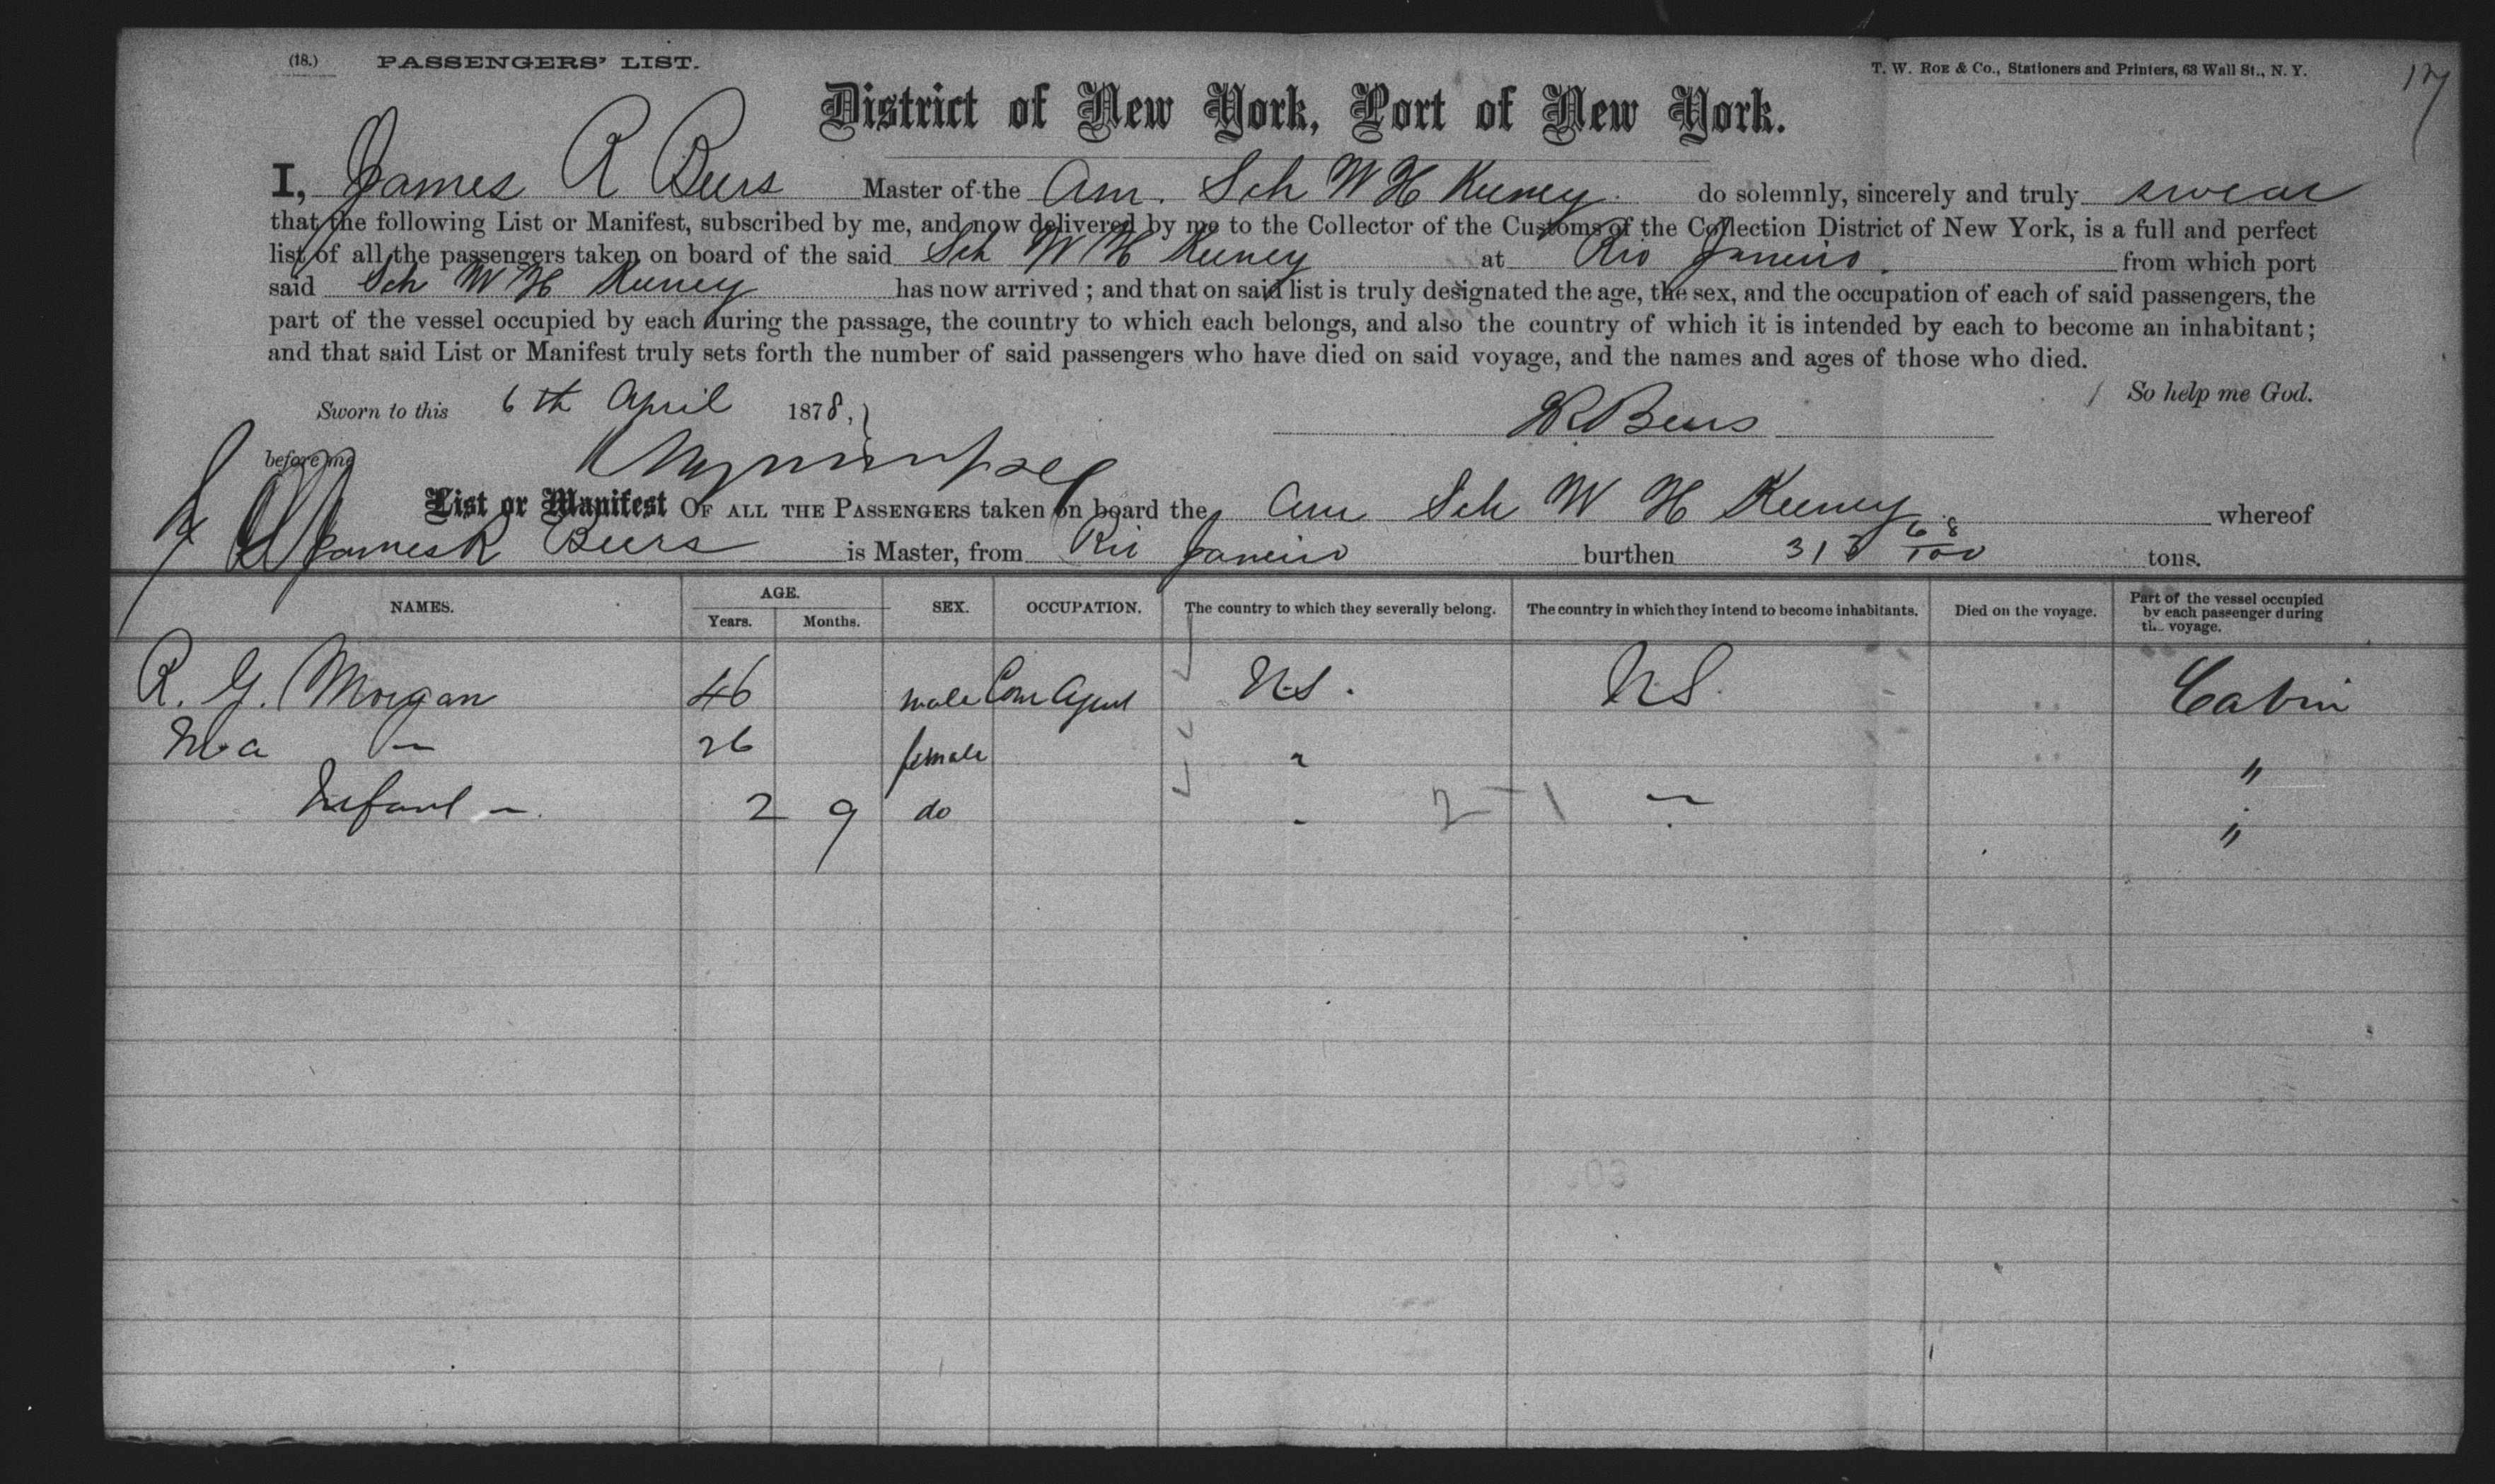 (18.) PASSENGERS' LIST.
T. W. ROE & Co., Stationers and Printers, 63 Wall St., N. Y.
District of New York, Port of New York.
I, James R Beers Master of the Am. Sch W H Keeney do solemnly, sincerely and truly swear
that the following List or Manifest, subscribed by me, and now delivered by me to the Collector of the Customs of the Collection District of New York, is a full and perfect
list of all the passengers taken on board of the said Sch W H Keeney at Rio Janeiro. from which port
said Sch W H Keeney has now arrived; and that on said list is truly designated the age, the sex, and the occupation of each of said passengers, the
part of the vessel occupied by each during the passage, the country to which each belongs, and also the country of which it is intended by each to become an inhabitant;
and that said List or Manifest truly sets forth the number of said passengers who have died on said voyage, and the names and ages of those who died.
So help me God.
Sworn to this 6th April 1878,
J R Beers
before me
List or Manifest OF ALL THE PASSENGERS taken on board the Am Sch W H Keeney whereof
James R Beers is Master, from Rio Janeiro burthen 68/100 tons.
NAMES. AGE. Years. Months. SEX. OCCUPATION. The country to which they severally belong. The country in which they intend to become inhabitants. Died on the voyage. Part of the vessel occupied by each passenger during the voyage.
R. G. Morgan 46 male Com Agent U.S. U S. Cabin
— 26 female " "
Infant — 2 9 do " 2-1 — "